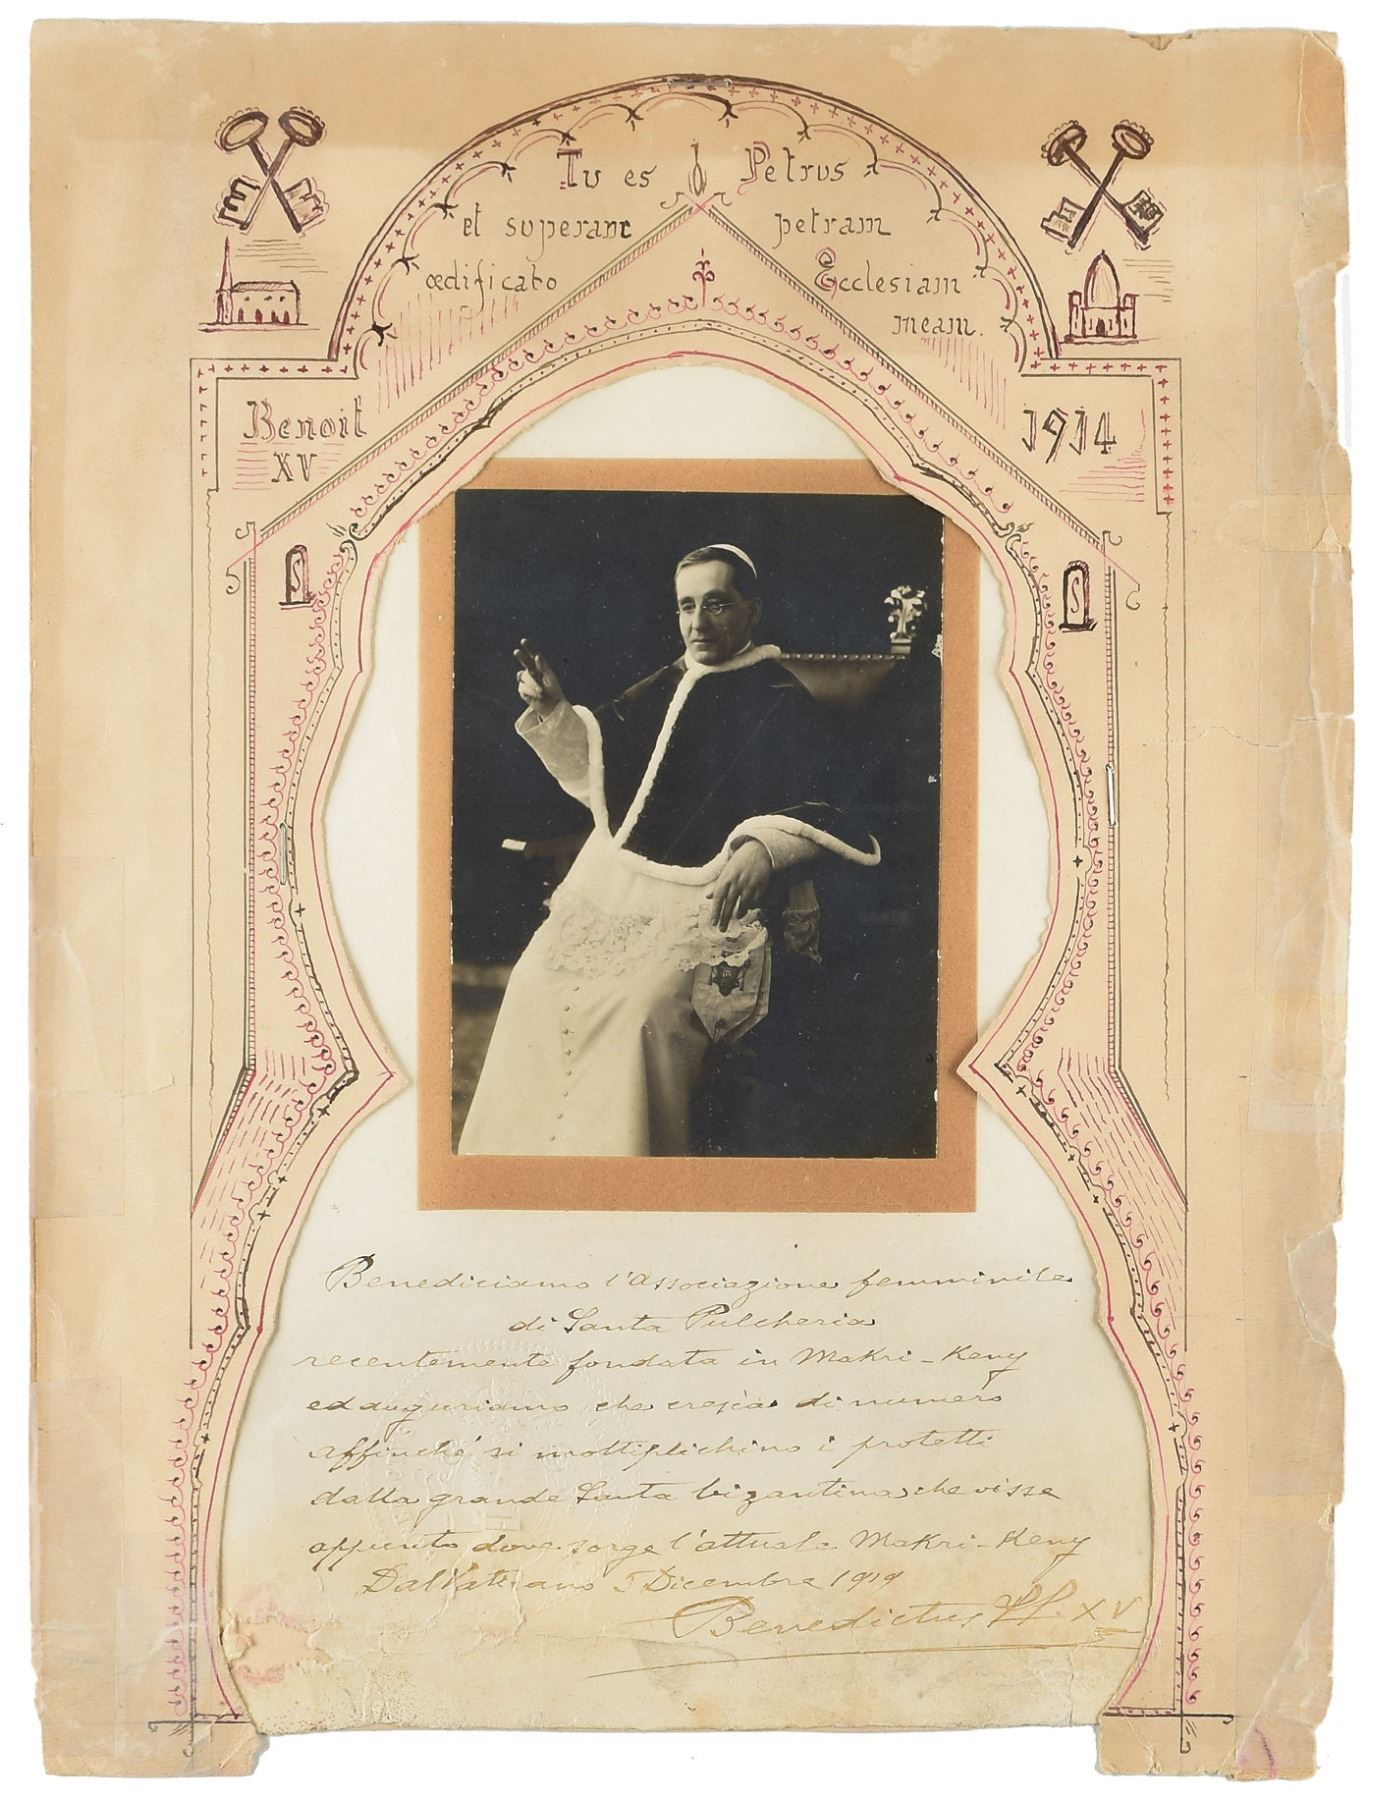 Tu es Petrus
et superanc petram
œdificabo Ecclesiam
meam.
Benoit
XV
1914
Benediciamo l'associazione femminile
di Santa Pulcheria
recentemente fondata in Makri-Keuy
ed auguriamo che cresca di numero
affinchè si moltiplichino i protetti
dalla grande Santa bizantina che visse
appunto dove sorge l'attuale Makri-Keuy
Dal Vaticano 5 Dicembre 1919
Benedictus PP. XV